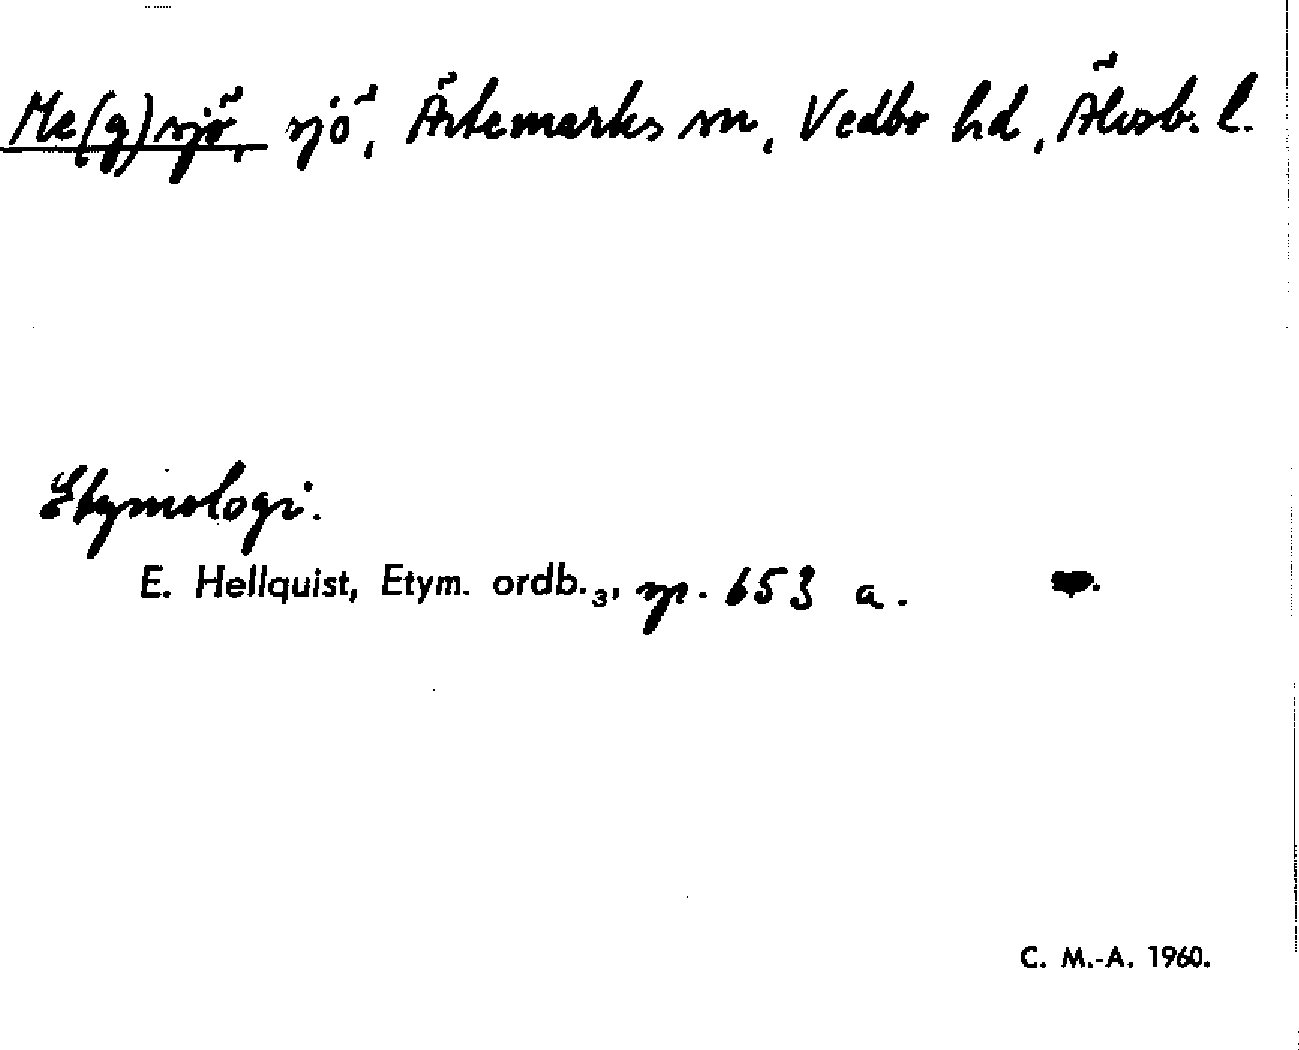 Me(g)sjö, sjö, Ärtemarks sn, Vedbo hd, Älvsb. l.
Etymologi.
E. Hellquist, Etym. ordb.₃, sp. 653 a.
C. M.-A. 1960.